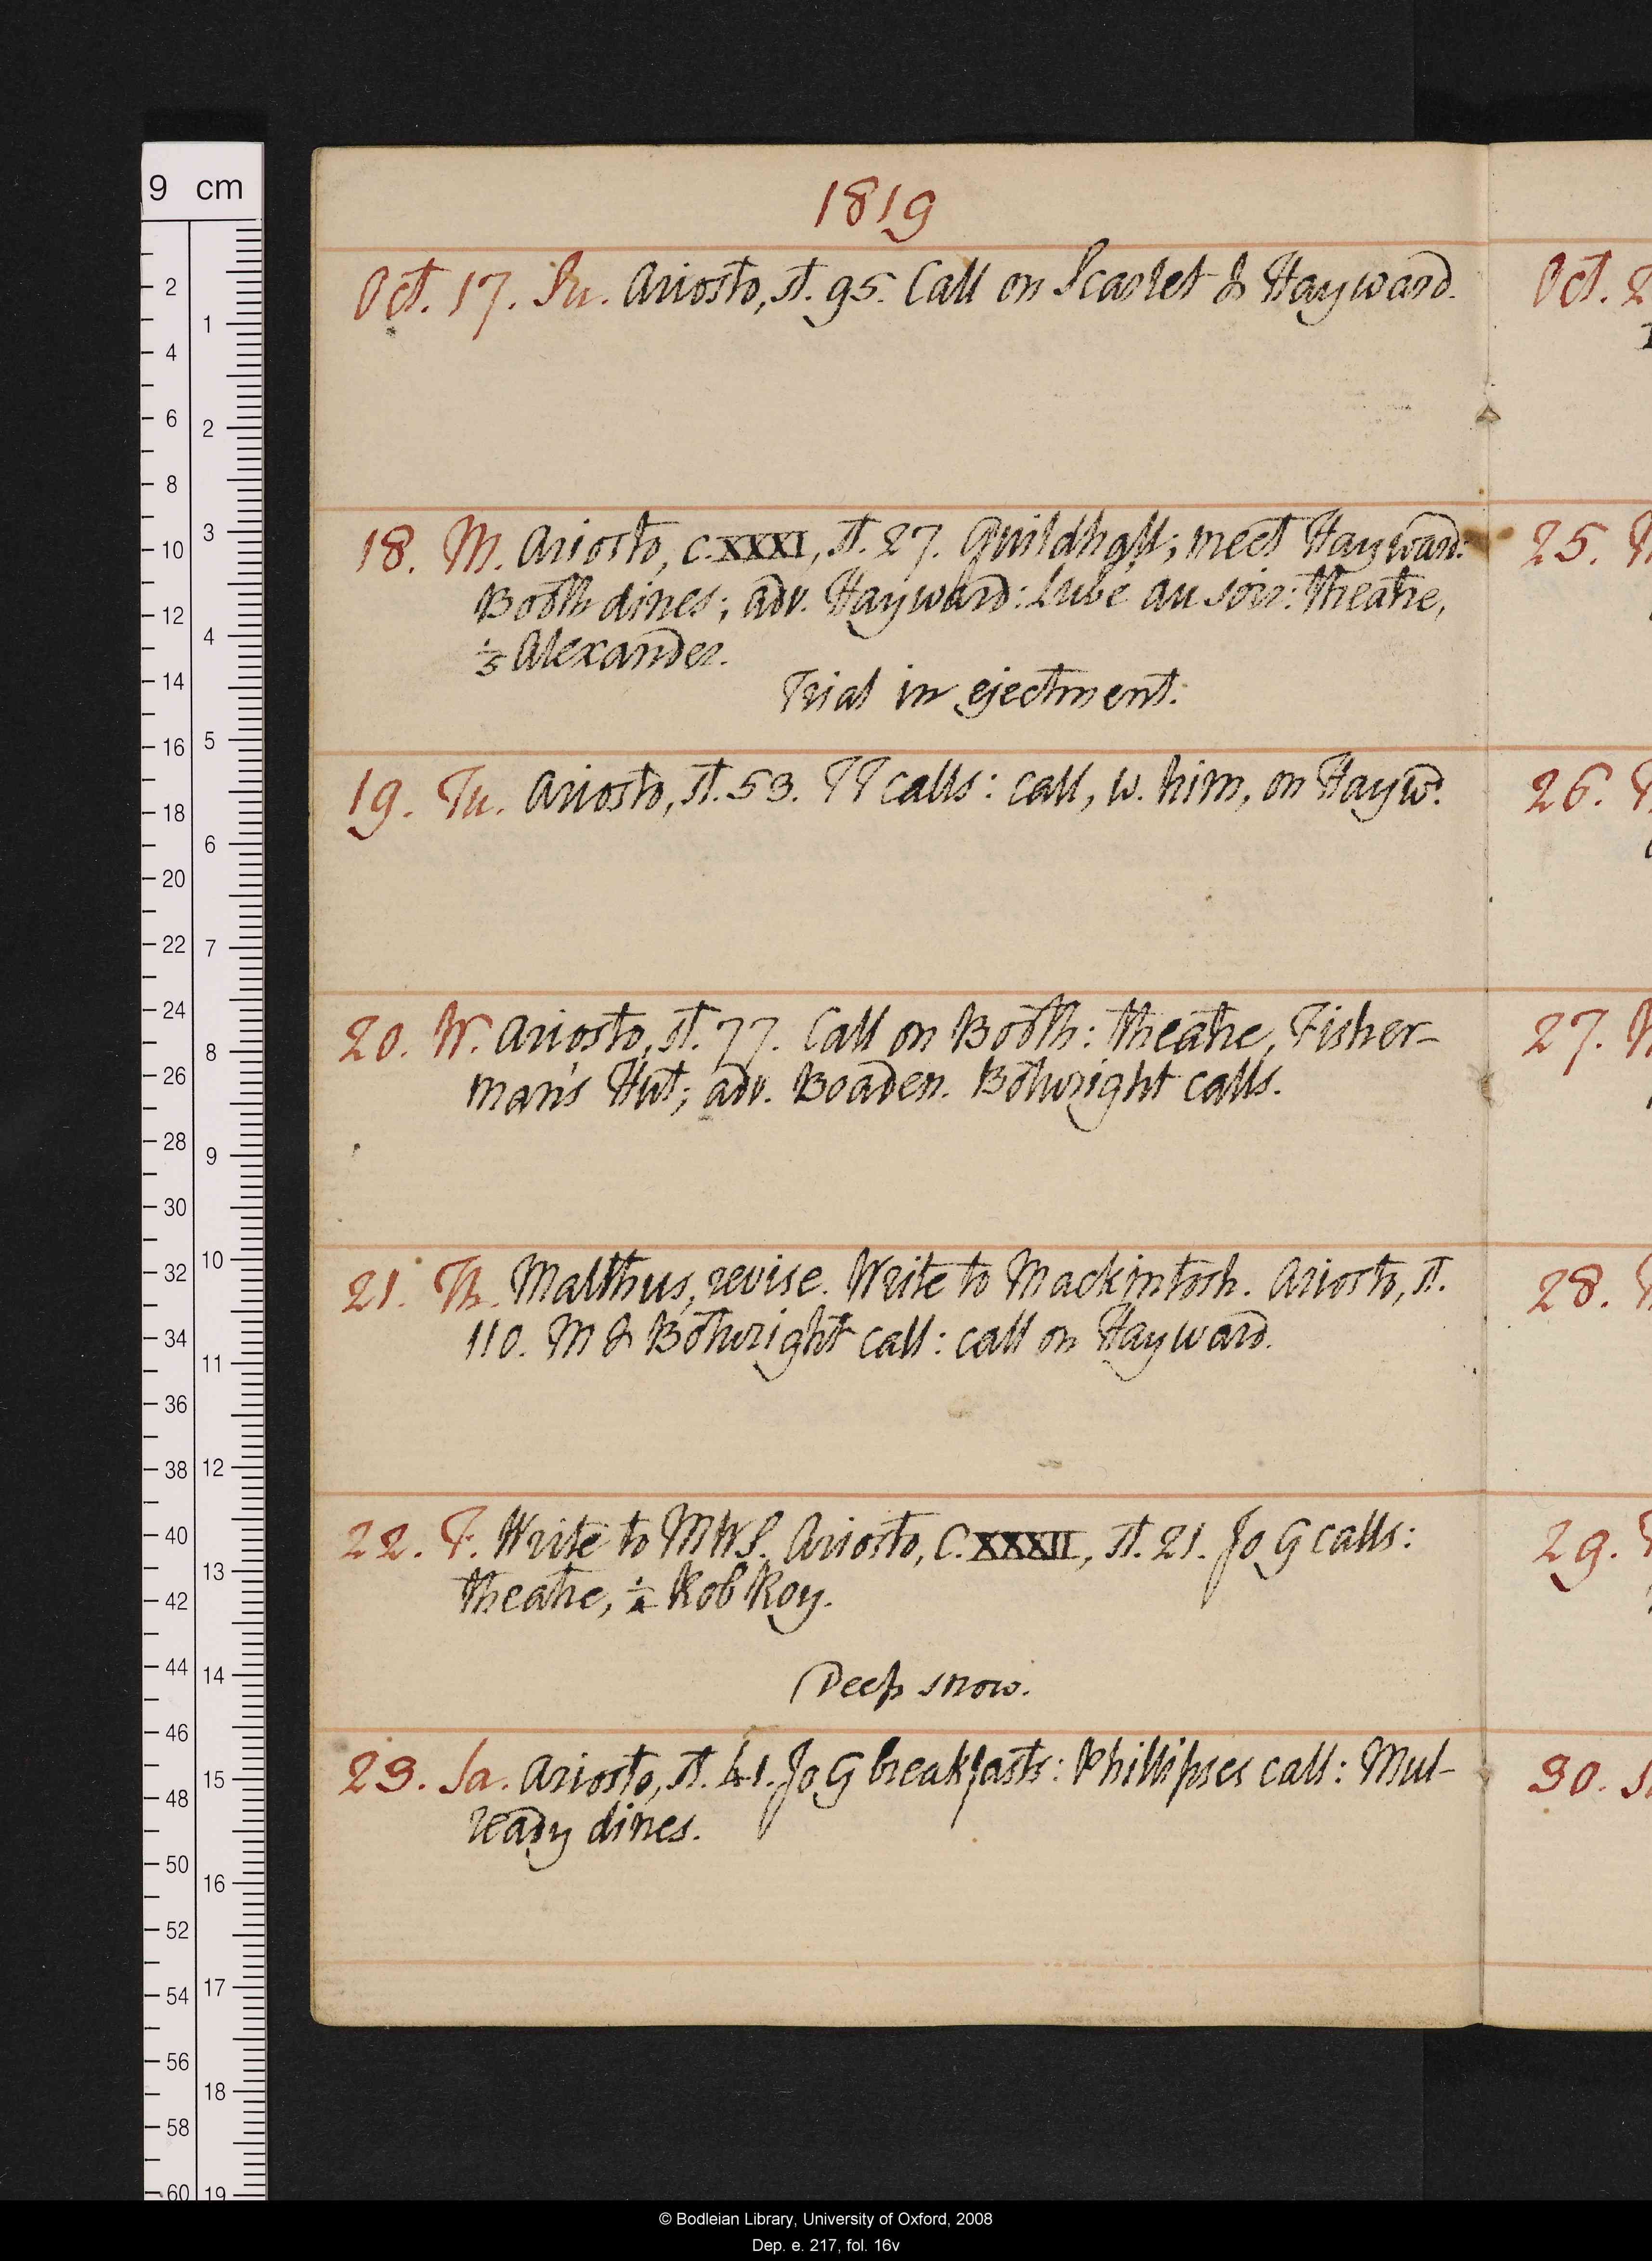 9 cm
1819
Oct. 17. Su. Ariosto, st. 95. Call on Scarlet & Hayward.
18. M. Ariosto, C. XXXI, st. 27. Guildhall; meet Hayward:
Booth dines; adv. Hayward: Lube au soir: theatre,
⅓ Alexander.
Trial in ejectment.
19. Tu. Ariosto, st. 53. TT calls: call, w. him, on Haywd.
20. W. Ariosto, st. 77. Call on Booth: theatre, Fisher-
man's Hut; adv. Boaden. Botwright calls.
21. Th. Malthus, revise. Write to Mackintosh. Ariosto, st.
110. M & Botwright call: call on Hayward.
22. F. Write to MWS. Ariosto, C. XXXII, st. 21. Jo G calls:
theatre, ½ Rob Roy.
Deep snow.
23. Sa. Ariosto, st. 41. Jo G breakfasts: Phillipses call: Mul-
ready dines.
Oct. 2
25.
26.
27.
28.
29.
30.
2
4
6
8
10
12
14
16
18
20
22
24
26
28
30
32
34
36
38
40
42
44
46
48
50
52
54
56
58
60
1
2
3
4
5
6
7
8
9
10
11
12
13
14
15
16
17
18
19
© Bodleian Library, University of Oxford, 2008
Dep. e. 217, fol. 16v